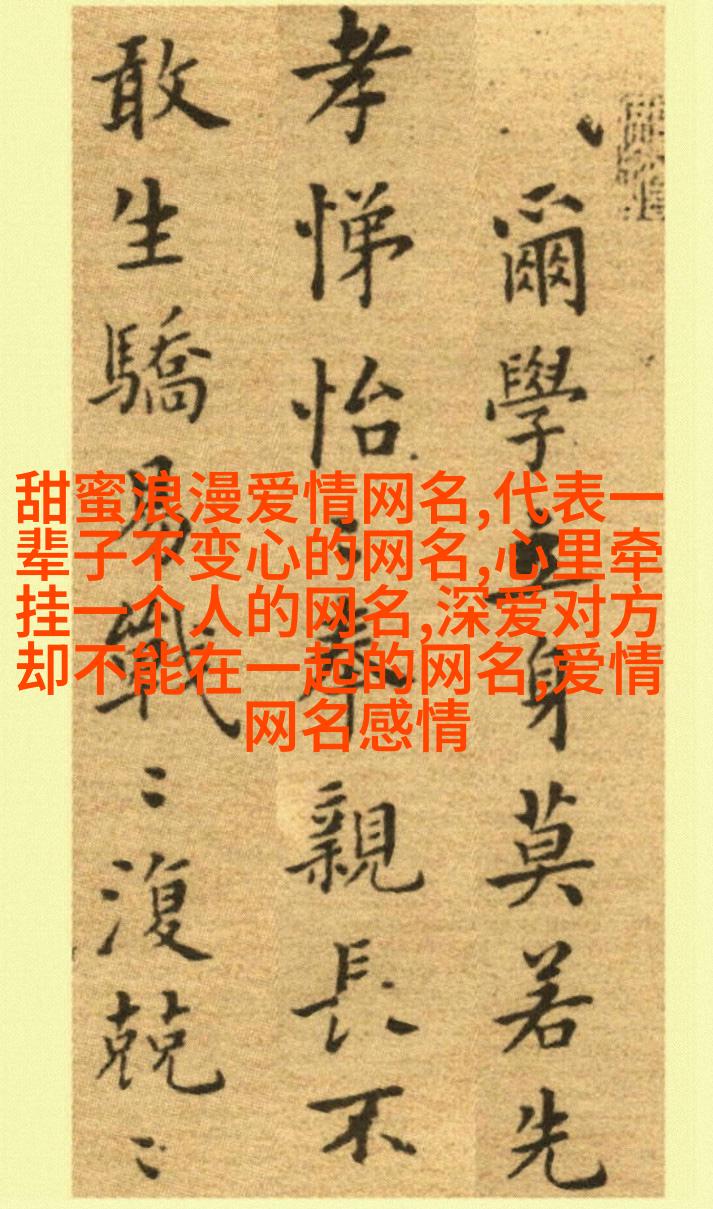 爾學立身莫若先
孝悌怡〻奉親長不
敢生驕易戰〻復兢〻
甜蜜浪漫爱情网名,代表一
辈子不变心的网名,心里牵
挂一个人的网名,深爱对方
却不能在一起的网名,爱情
网名感情